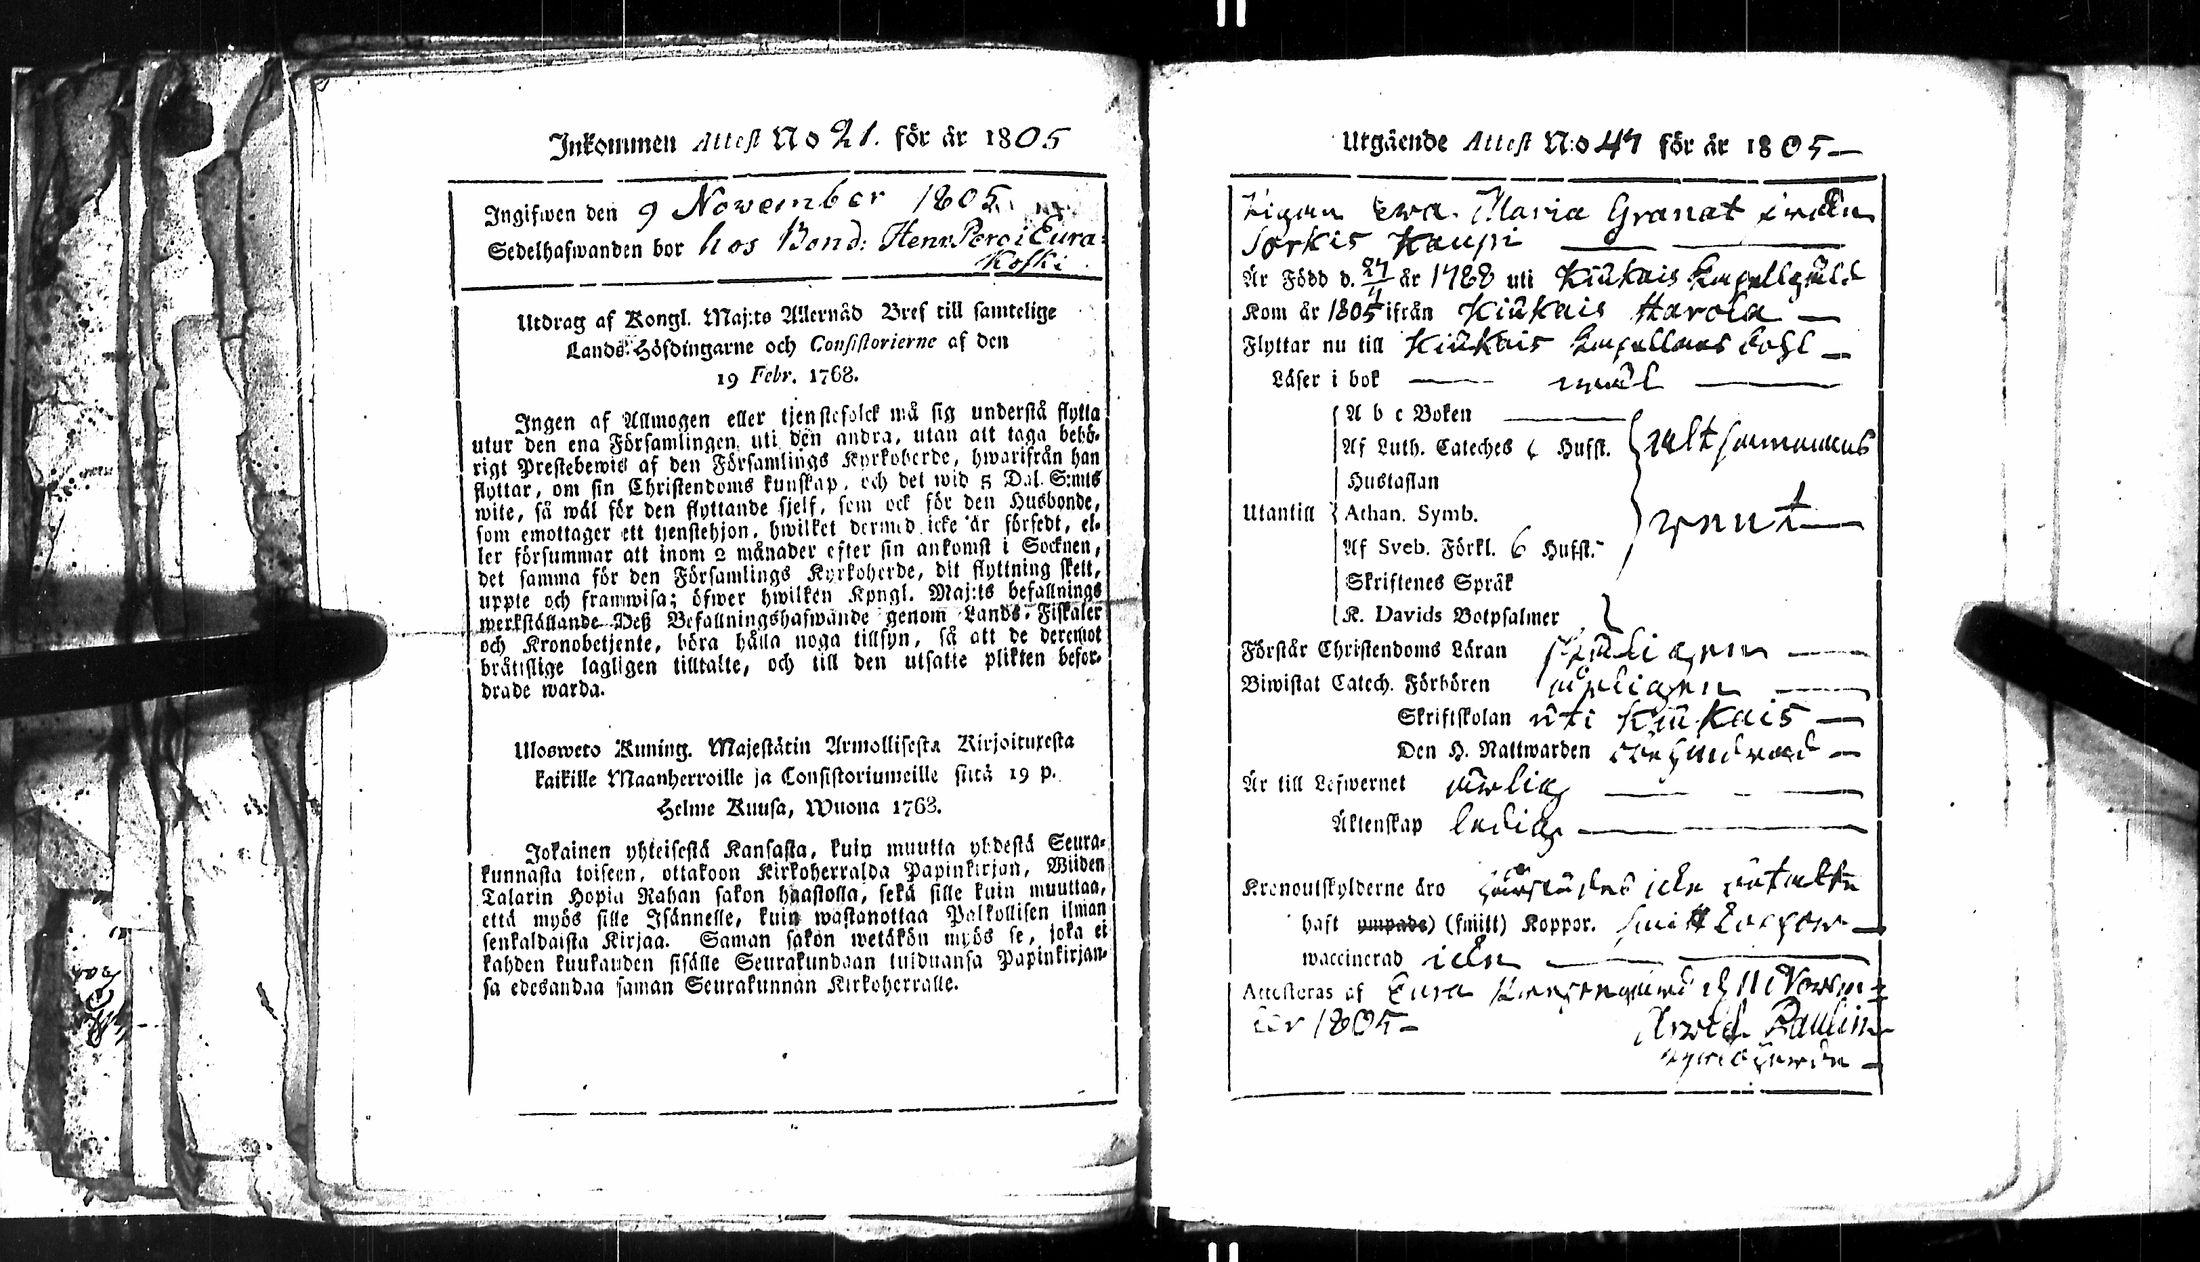 Inkommen Attest No 21. för år 1805
Ingifwen den 9 November 1805.
Sedelhafwanden bor hos Bond: Henr. Peroi Eura:
Koski
Utdrag af Kongl. Maj:ts Allernåd Bref till samtelige
Lands-Höfdingarne och Consistorierne af den
19 Febr. 1768.
Ingen af Allmogen eller tjenstefolck må sig understå flytta
utur den ena Församlingen uti den andra, utan att taga behö-
rigt Prestebewis af den Församlings Kyrkoherde, hwarifrån han
flyttar, om sin Christendoms kunskap, och det wid 5 Dal. S:mts
wite, så wäl för den flyttande sjelf, som ock för den Husbonde,
som emottager ett tjenstehjon, hwilket dermed icke är försedt, el-
ler försummar att inom 2 månader efter sin ankomst i Socknen,
det samma för den Församlings Kyrkoherde, dit flyttning skett,
uppte och framwisa; öfwer hwilken Kongl. Maj:ts befallnings
werkställande Deß Befallningshafwande genom Lands-Fiskaler
och Kronobetjente, böra hålla noga tillsyn, så att de deremot
bråtislige lagligen tilltalte, och till den utsatte plikten befor-
drade warda.
Ulosweto Kuning. Majestätin Armollisesta Kirjoituxesta
kaikille Maanherroille ja Consistoriumeille siitä 19 p.
Helme Kuusa, Wuona 1768.
Jokainen yhteisestä Kansasta, kuin muutta yhdestä Seura-
kunnasta toiseen, ottakoon Kirkoherralda Papinkirjan, Wiiden
Talarin Hopia Rahan sakon haastolla, sekä sille kuin muuttaa,
että myös sille Isännelle, kuin wastanottaa Palkollisen ilman
senkaldaista Kirjaa. Saman sakon wetäkön myös se, joka ei
kahden kuukauden sisälle Seurakundaan tulduansa Papinkirjan-
sa edesandaa saman Seurakunnan Kirkoherralle.
Utgående Attest N:o 47 för år 1805
Pigan Ewa Maria Granat ifrån
Sorkis Kaupi
Är Född d. 27/11 år 1788 uti Kiukais Capellgäld
Kom år 1805 ifrån Kiukais Harola
Flyttar nu till Kiukais Capellans bohl
Läser i bok wäl
A b c Boken
Af Luth. Cateches 6 Hufst. altsammans
Hustaflan
Utantill Athan. Symb. rent
Af Sveb. Förkl. 6 Hufst.
Skriftenes Språk
K. Davids Botpsalmer
Förstår Christendoms Läran
Biwistat Catech. Förhören
Skriftskolan uti Kiukais
Den H. Nattwarden
Är till Lefwernet ärlig
Äktenskap ledig
Kronoutskylderne äro
haft ympade) (smitt) Koppor. smitt koppor
waccinerad icke
Attesteras af Eura d 11 Novem-
ber 1805
Arwid Paulin